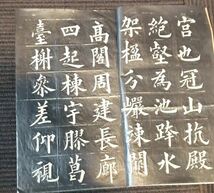 宮也冠山抗殿
絕壑為池跨水
架楹分巖竦闕
高閣周建長廊
四起棟宇膠葛
臺榭參差仰視